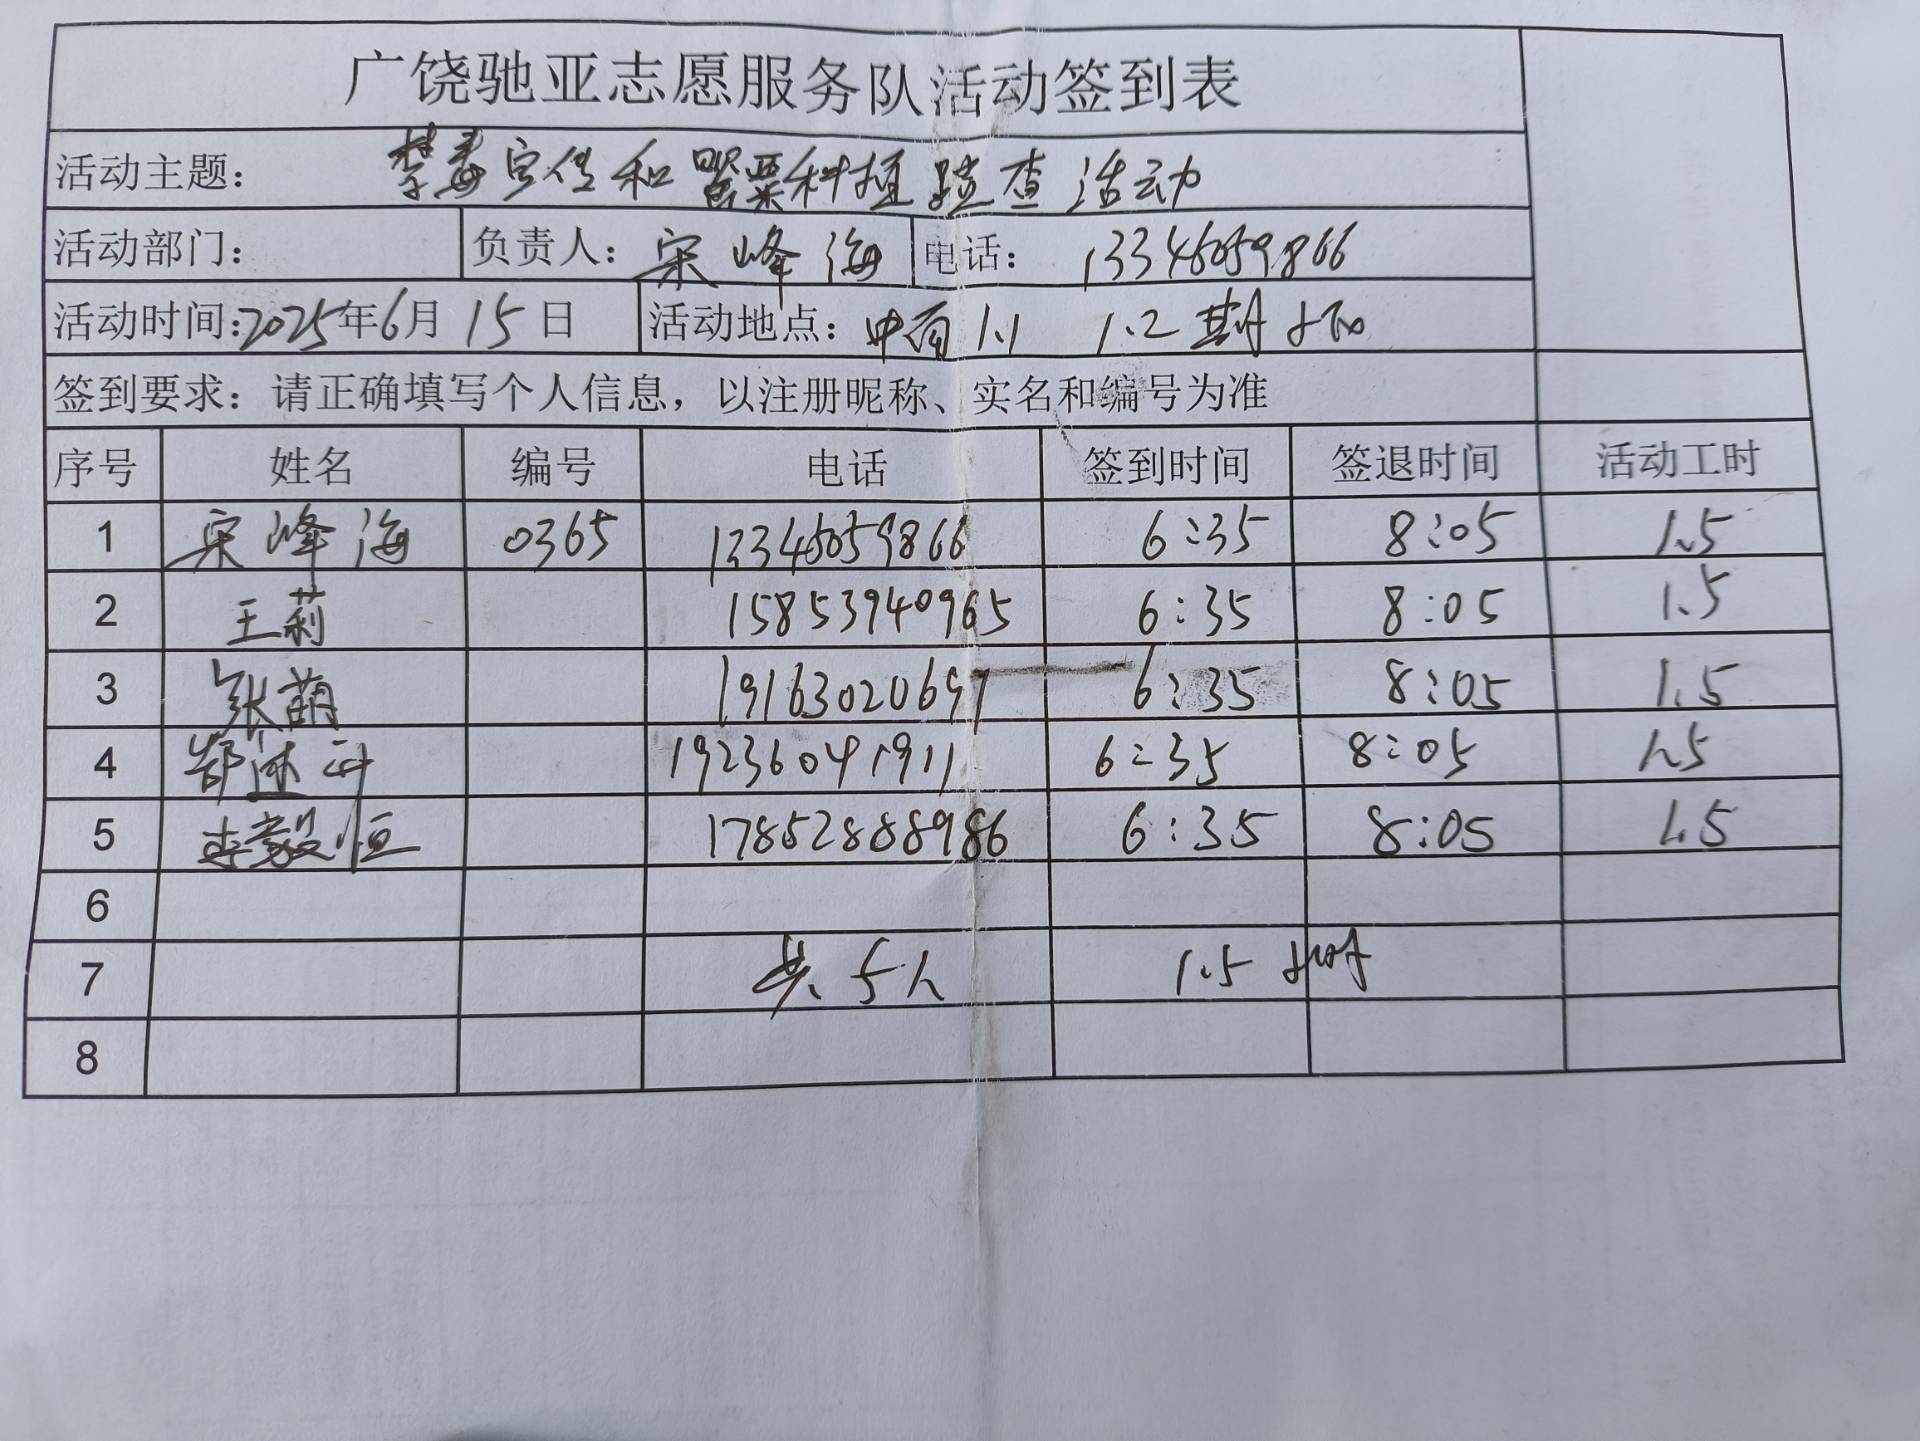 广饶驰亚志愿服务队活动签到表
活动主题： 禁毒宣传和罂粟种植踏查活动
活动部门： 负责人：宋峰海 电话： 13346059866
活动时间：2025年6月15日 活动地点： 1.1 1.2期
签到要求：请正确填写个人信息，以注册昵称、实名和编号为准
序号 姓名 编号 电话 签到时间 签退时间 活动工时
1 宋峰海 0365 13346059866 6:35 8:05 1.5
2 王莉 15853940965 6:35 8:05 1.5
3 张萌 19163020697 6:35 8:05 1.5
4 19236041911 6:35 8:05 1.5
5 李毅恒 17852888986 6:35 8:05 1.5
6
7 共5人 1.5小时
8